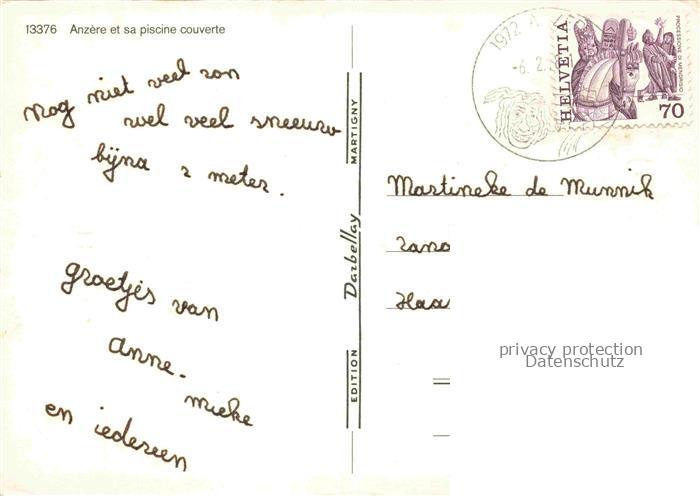 13376 Anzère et sa piscine couverte
nog niet veel zon
wel veel sneeuw
bijna 2 meter.
groetjes van
Anne-
mieke
en iedereen
EDITION Darbellay MARTIGNY
1972 A
-6. 2.
HELVETIA
PROCESSIONS DI MENDRISIO
70
Martineke de Munnik
zand
Haa
privacy protection
Datenschutz